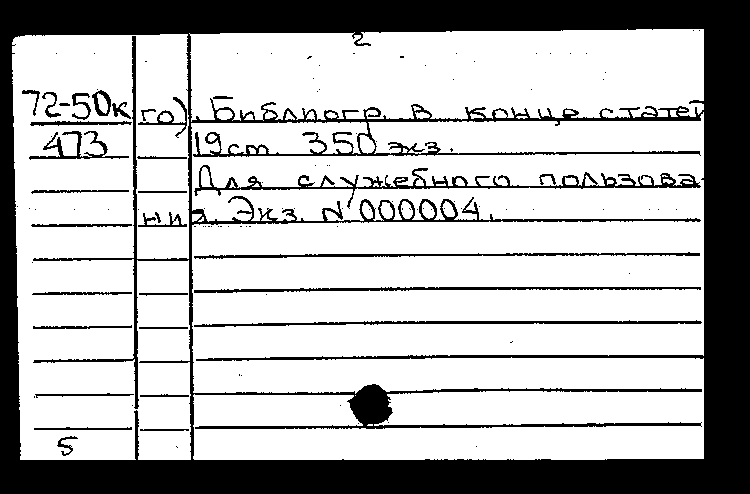 2
72-50к го). Библиогр. в конце статей
473 19 ст. 350 экз.
Для служебного пользова-
ния. Экз. N 000004.
5